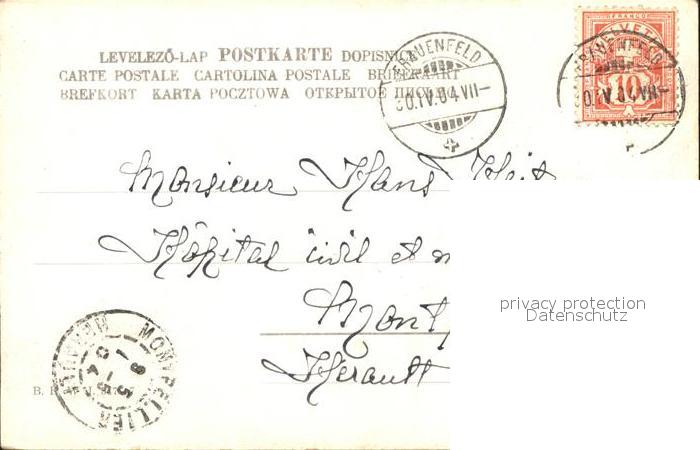 FRANCO
HELVETIA
10
LEVELEZŐ-LAP POSTKARTE DOPISNICE
CARTE POSTALE CARTOLINA POSTALE BRIEFKAART
BREFKORT KARTA POCZTOWA ОТКРЫТОЕ ПИСЬМО
FRAUENFELD
30.IV.04.VII-
FRAUENFELD
30.IV.04.VII-
Monsieur Hans
Hôpital civil et m
Mont
Herault
privacy protection
Datenschutz
MONTPELLIER
HERAULT
B.